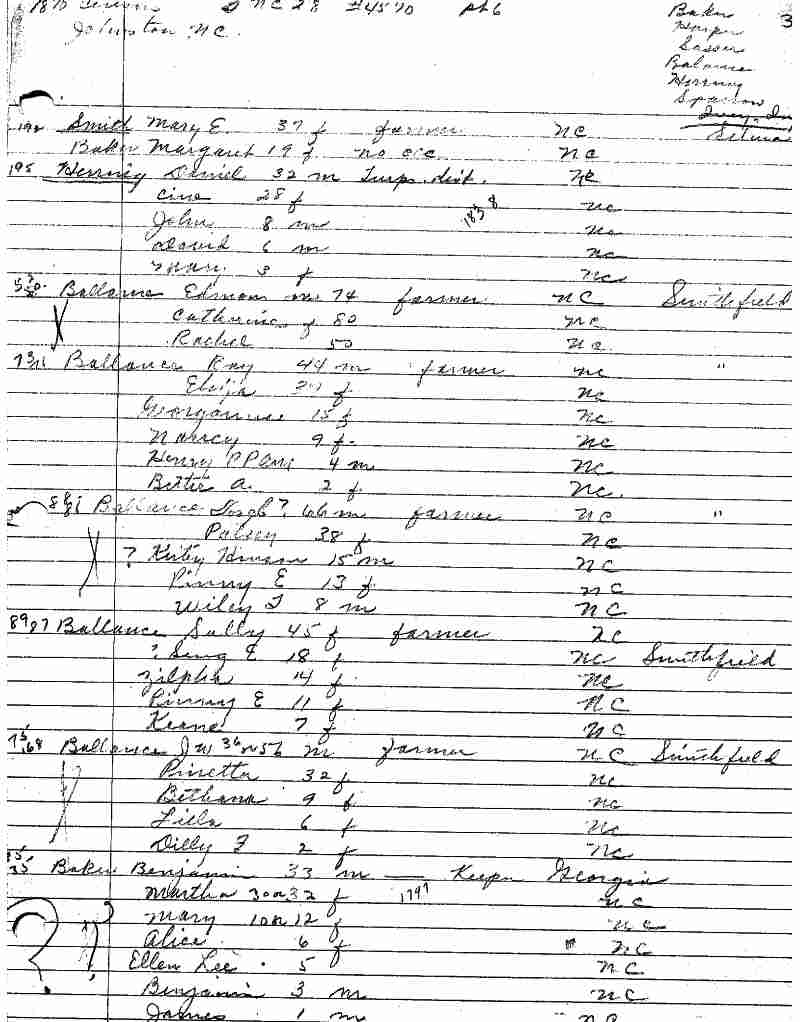 NC 28 #4570 pt 6
Johnston NC.
Baker
Harper
Sasser
Balance
Herring
Sparrow
Selma
3
Smith Mary E. 37 f farmer NC
Baker Margaret 19 f no occ NC
195 Herring Daniel 32 m Turp. dist. NC
28 f NC
1838
John 8 m NC
David 6 m NC
Mary 3 f NC
Ballance Edmon m 74 farmer NC Smithfield
Catherine f 80 NC
Rachel 50 NC
Ballance Ray 44 m farmer NC "
Eliza f NC
Georganna 15 f NC
Nancy 9 f. NC
Henry 4 m NC
Bettie A. 2 f NC.
Ballance ? 66 m farmer NC "
Patsey 38 f NC
? Kirby Hinson 15 m NC
Pinny E 13 f NC
Wiley T 8 m NC
8987 Ballance Sally 45 f farmer NC
? E 18 f NC Smithfield
Zilpha 14 f NC
Pinny E 11 f NC
7 f NC
Ballance J W 36 or 56 m farmer NC Smithfield
Pinetta 32 f NC
Bethana 9 f NC
6 f NC
Dilly F 2 f NC
Baker Benjamin 33 m — Keeper Georgia
Martha 30 or 32 f 1797 NC
? ? Mary 10 or 12 f NC
Alice 6 f NC
Ellen Lee 5 NC.
Benjamin 3 m NC
James 1 m NC